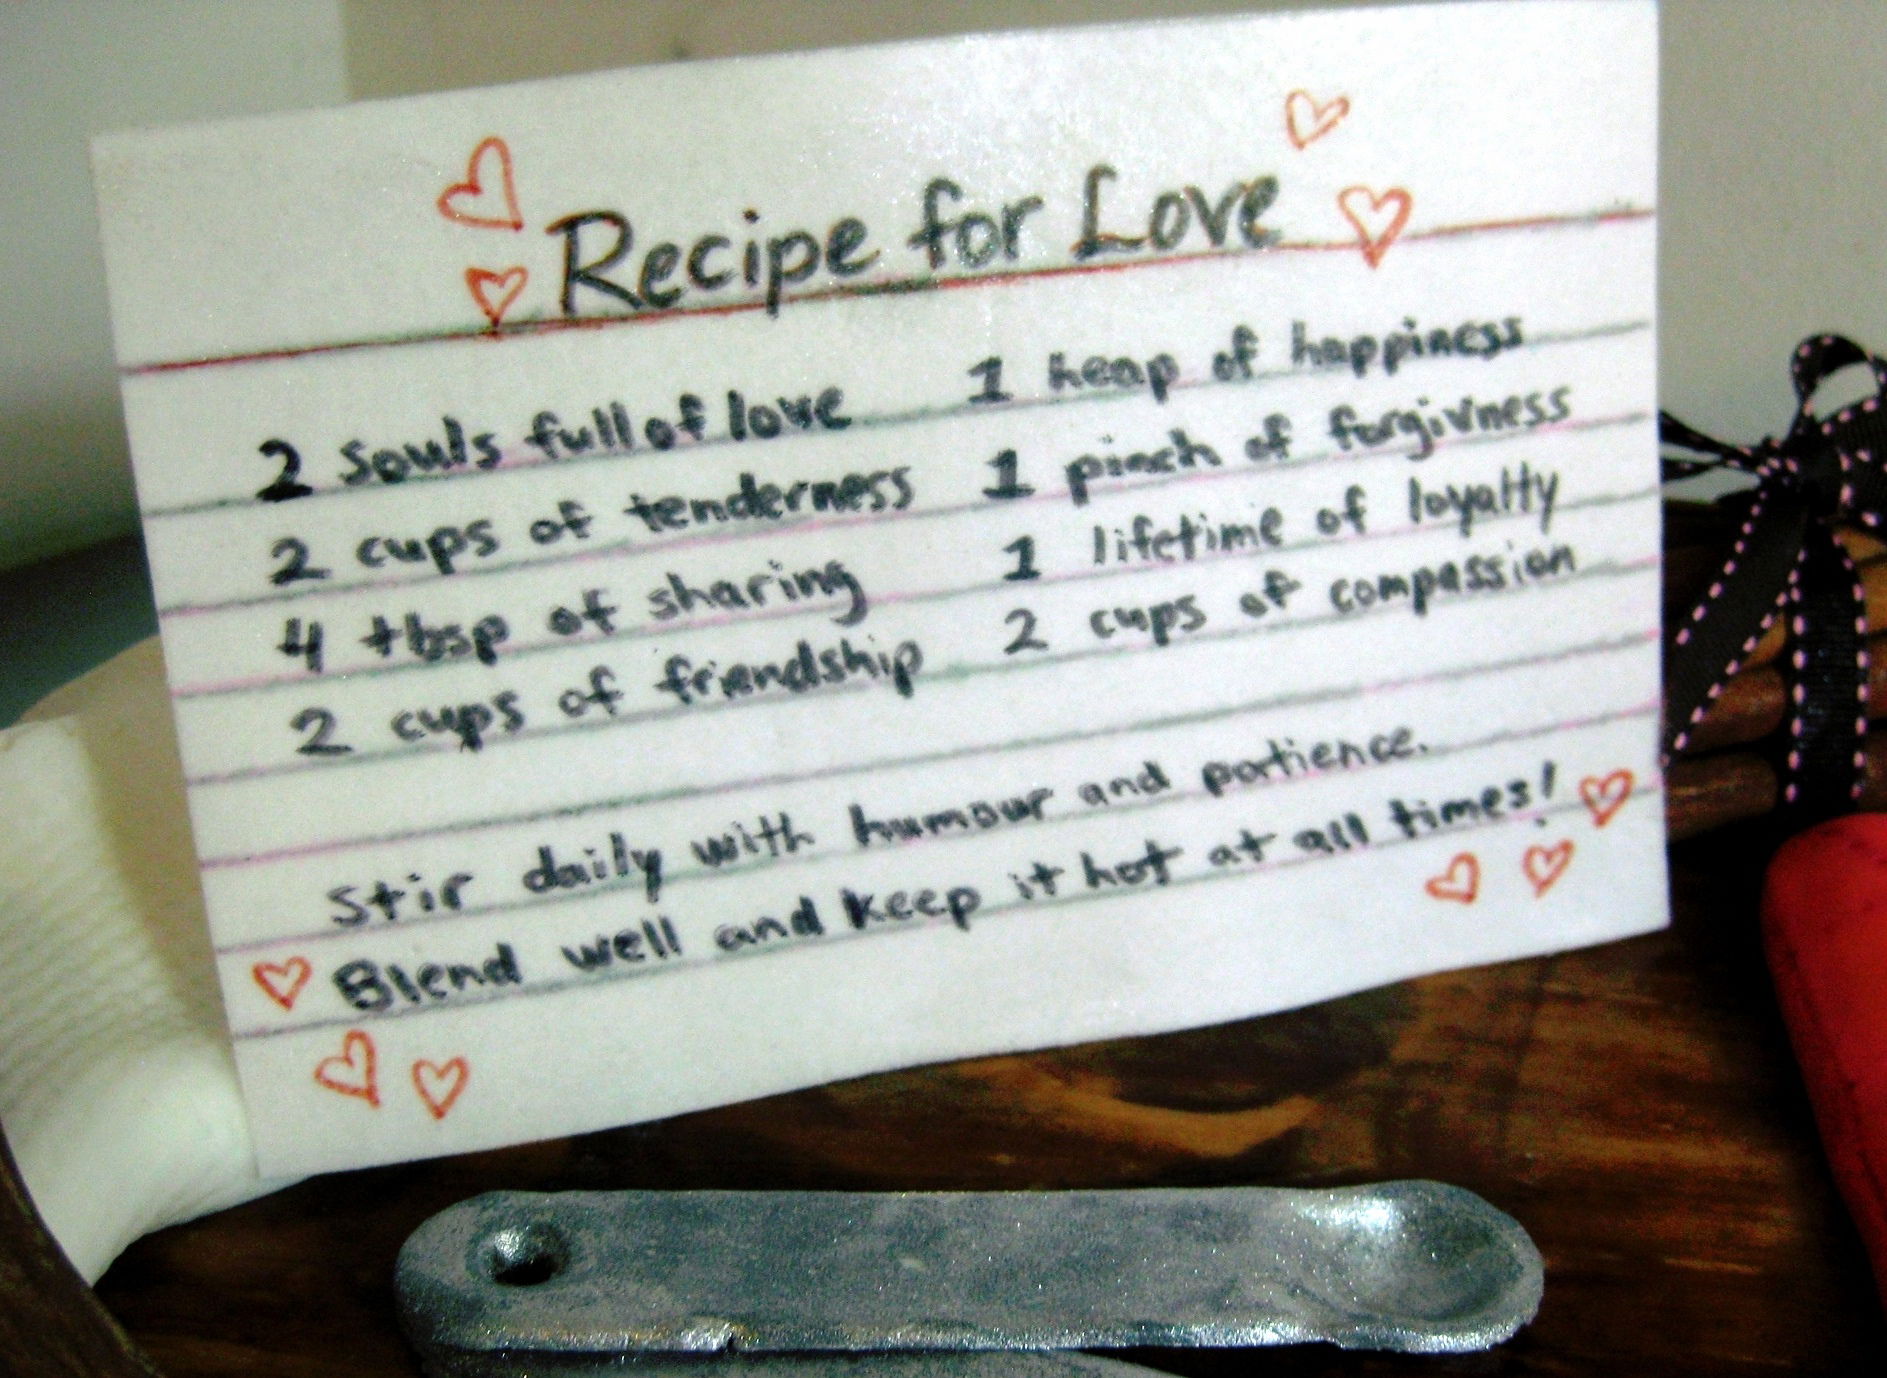 Recipe for Love
2 souls full of love
2 cups of tenderness
4 tbsp of sharing
2 cups of friendship
1 heap of happiness
1 pinch of forgivness
1 lifetime of loyalty
2 cups of compassion
Stir daily with humour and patience.
Blend well and keep it hot at all times!